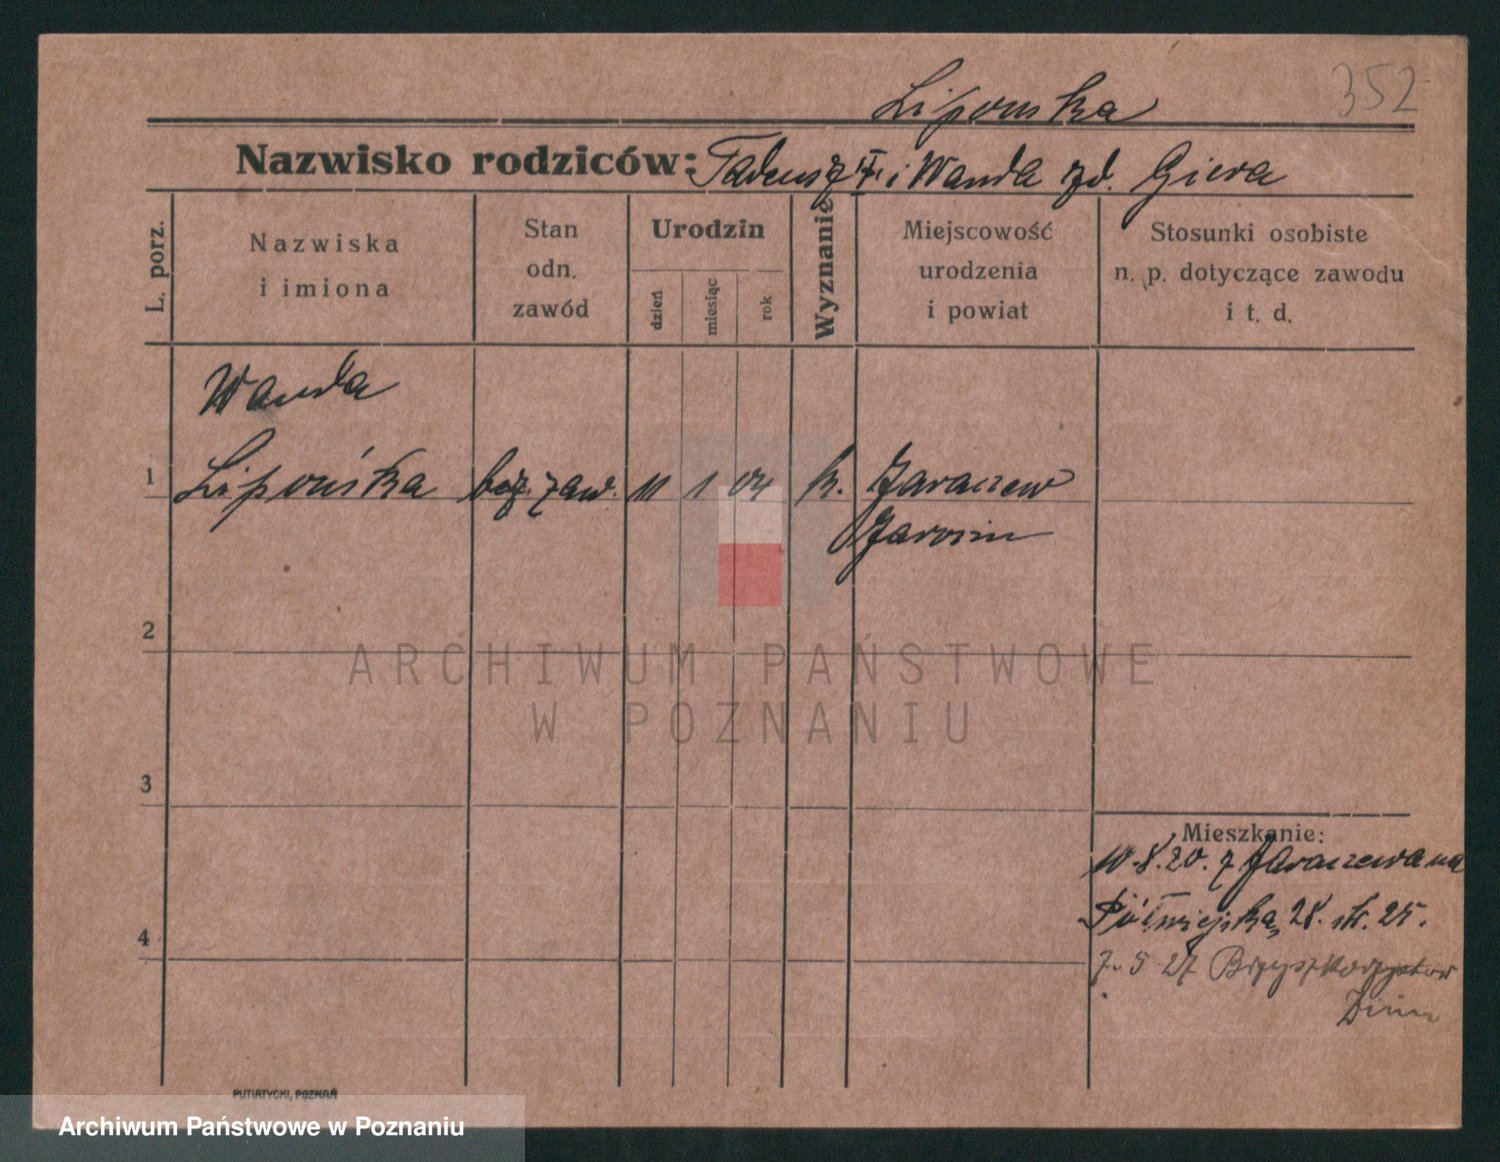 352
Lipońska
Nazwisko rodziców: Tadeusz i Wanda zd. Giera
L. porz.
Nazwiska
i imiona
Stan
odn.
zawód
Urodzin
dzień
miesiąc
rok
Wyznanie
Miejscowość
urodzenia
i powiat
Stosunki osobiste
n. p. dotyczące zawodu
i t. d.
Wanda
1 Lipońska bez zaw. 11 1 04 k. Jaraczew
Jarocin
2
ARCHIWUM PAŃSTWOWE
W POZNANIU
3
Mieszkanie:
10.8.20. z Jaraczewa na
Półwiejska 28. 25.
4
7. 5 27
PUTIATYCKI, POZNAŃ
Archiwum Państwowe w Poznaniu